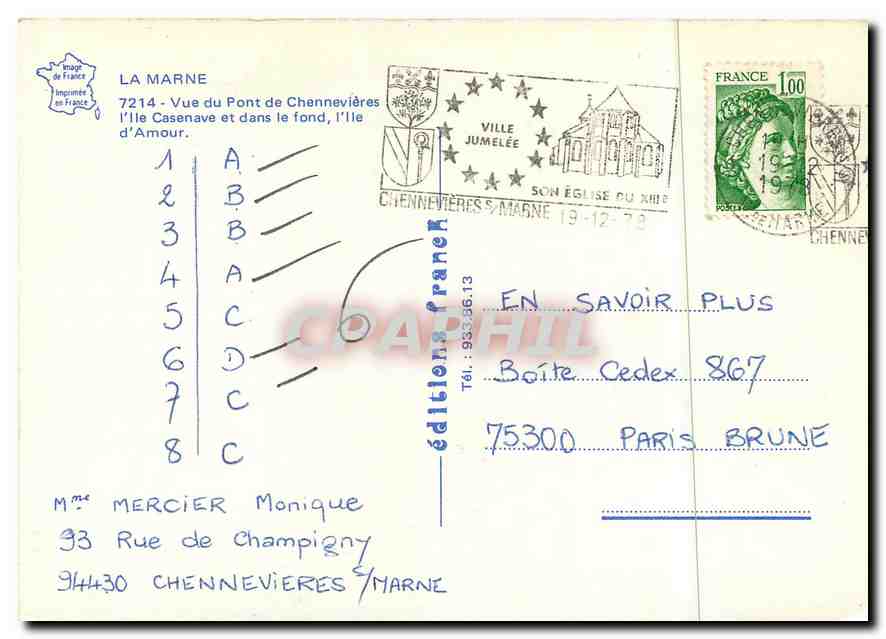 Image
de France
Imprimée
en France
LA MARNE
7214 - Vue du Pont de Chennevières
l'Ile Casenave et dans le fond, l'Ile
d'Amour.
VILLE
JUMELÉE
SON ÉGLISE DU XIIIe
CHENNEVIÈRES S/MARNE 19-12-78
FRANCE 1,00
19-12
1978
CHENNEV
1 A
2 B
3 B
4 A
5 C
6 D
7 C
8 C
6
Mme MERCIER Monique
93 Rue de Champigny
94430 CHENNEVIERES S/MARNE
éditions franck
Tél. : 933.86.13
CPAPHIL
EN SAVOIR PLUS
Boîte Cedex 867
75300 PARIS BRUNE